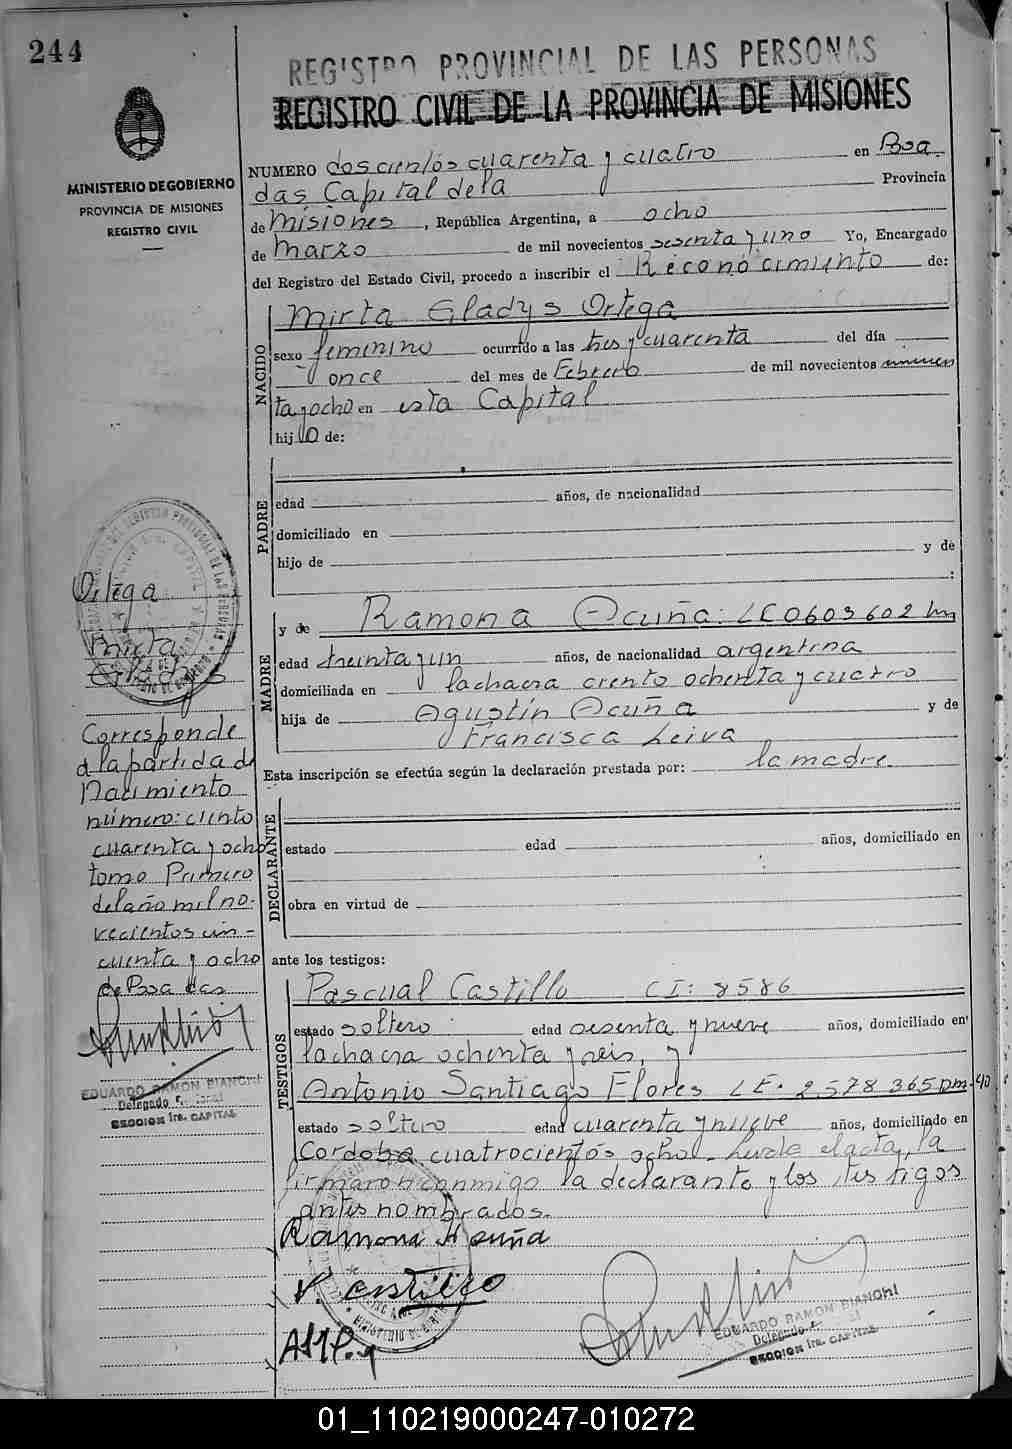 244
REGISTRO PROVINCIAL DE LAS PERSONAS
REGISTRO CIVIL DE LA PROVINCIA DE MISIONES
MINISTERIO DE GOBIERNO
PROVINCIA DE MISIONES
REGISTRO CIVIL
NUMERO doscientos cuarenta y cuatro en Posa
das Capital dela Provincia
de Misiones, República Argentina, a ocho
de Marzo de mil novecientos sesenta y uno Yo, Encargado
del Registro del Estado Civil, procedo a inscribir el Reconocimiento de:
NACIDO
Mirta Gladys Ortega
sexo femenino ocurrido a las tres y cuarenta del día
once del mes de Febrero de mil novecientos cincuen
ta y ocho en esta Capital
hijo de:
PADRE
edad años, de nacionalidad
domiciliado en
hijo de y de
:
MADRE
y de Ramona Acuña: LC0603602
edad treinta y un años, de nacionalidad argentina
domiciliada en la chacra ciento ochenta y cuatro
hija de Agustín Acuña y de
Francisca Leiva
Esta inscripción se efectúa según la declaración prestada por: la madre
DECLARANTE
estado edad años, domiciliado en
obra en virtud de
ante los testigos:
TESTIGOS
Pascual Castillo CI: 8586
estado soltero edad sesenta y nueve años, domiciliado en
la chacra ochenta y seis, y
Antonio Santiago Flores LE. 2578365 DM. 40
estado soltero edad cuarenta y nueve años, domiciliado en
Cordoba cuatrocientos ocho. Leida el acta, la
firmaron conmigo la declarante y los testigos
antes nombrados.
Ramona Acuña
P. Castillo
EDUARDO RAMON BIANCHI
Delegado
SECCION 1ra. CAPITAL
Ortega
Mirta
Gladys
Corresponde
a la partida de
Nacimiento
número: ciento
cuarenta y ocho
tomo Primero
del año mil no-
vecientos cin-
cuenta y ocho
de Posadas
EDUARDO RAMON BIANCHI
Delegado
SECCION 1ra. CAPITAL
01_110219000247-010272